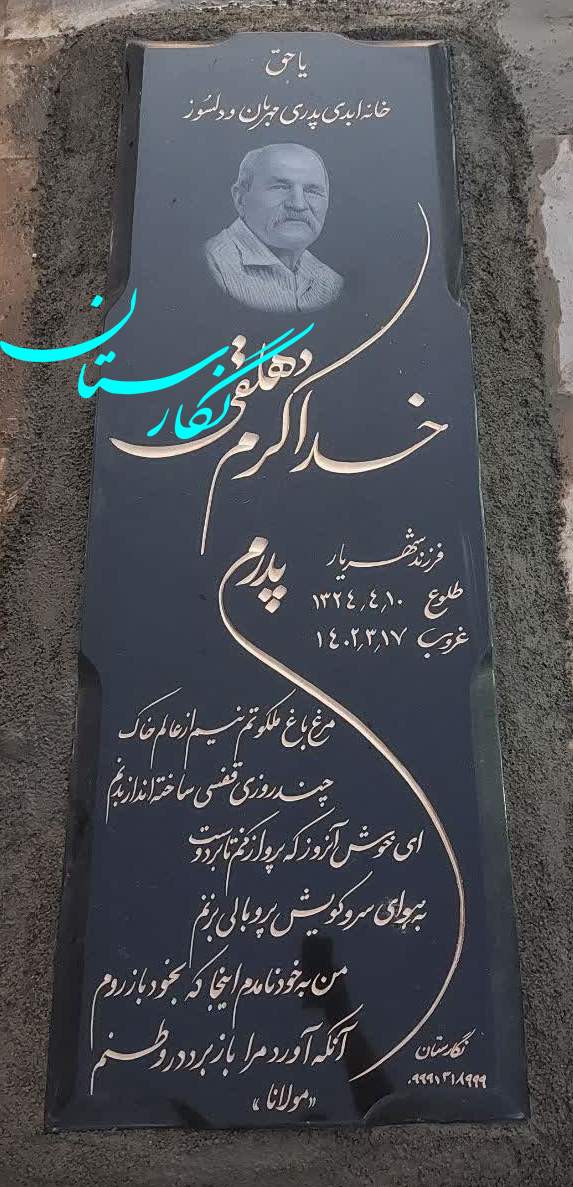 یا حق
خانه ابدی پدری مهربان و دلسوز
نگارستان
خداکرم دهلقی
فرزند شهریار
پدرم
طلوع ۱۳۲۴٫۴٫۱۰
غروب ۱۴۰۲٫۳٫۱۷
مرغ باغ ملکوتم نیم از عالم خاک
چند روزی قفسی ساخته اند از بدنم
ای خوش آنروز که پرواز کنم تا بر دوست
به هوای سر کویش پر و بالی بزنم
من به خود نامدم اینجا که بخود باز روم
آنکه آورد مرا باز برد در وطنم
«مولانا»
نگارستان